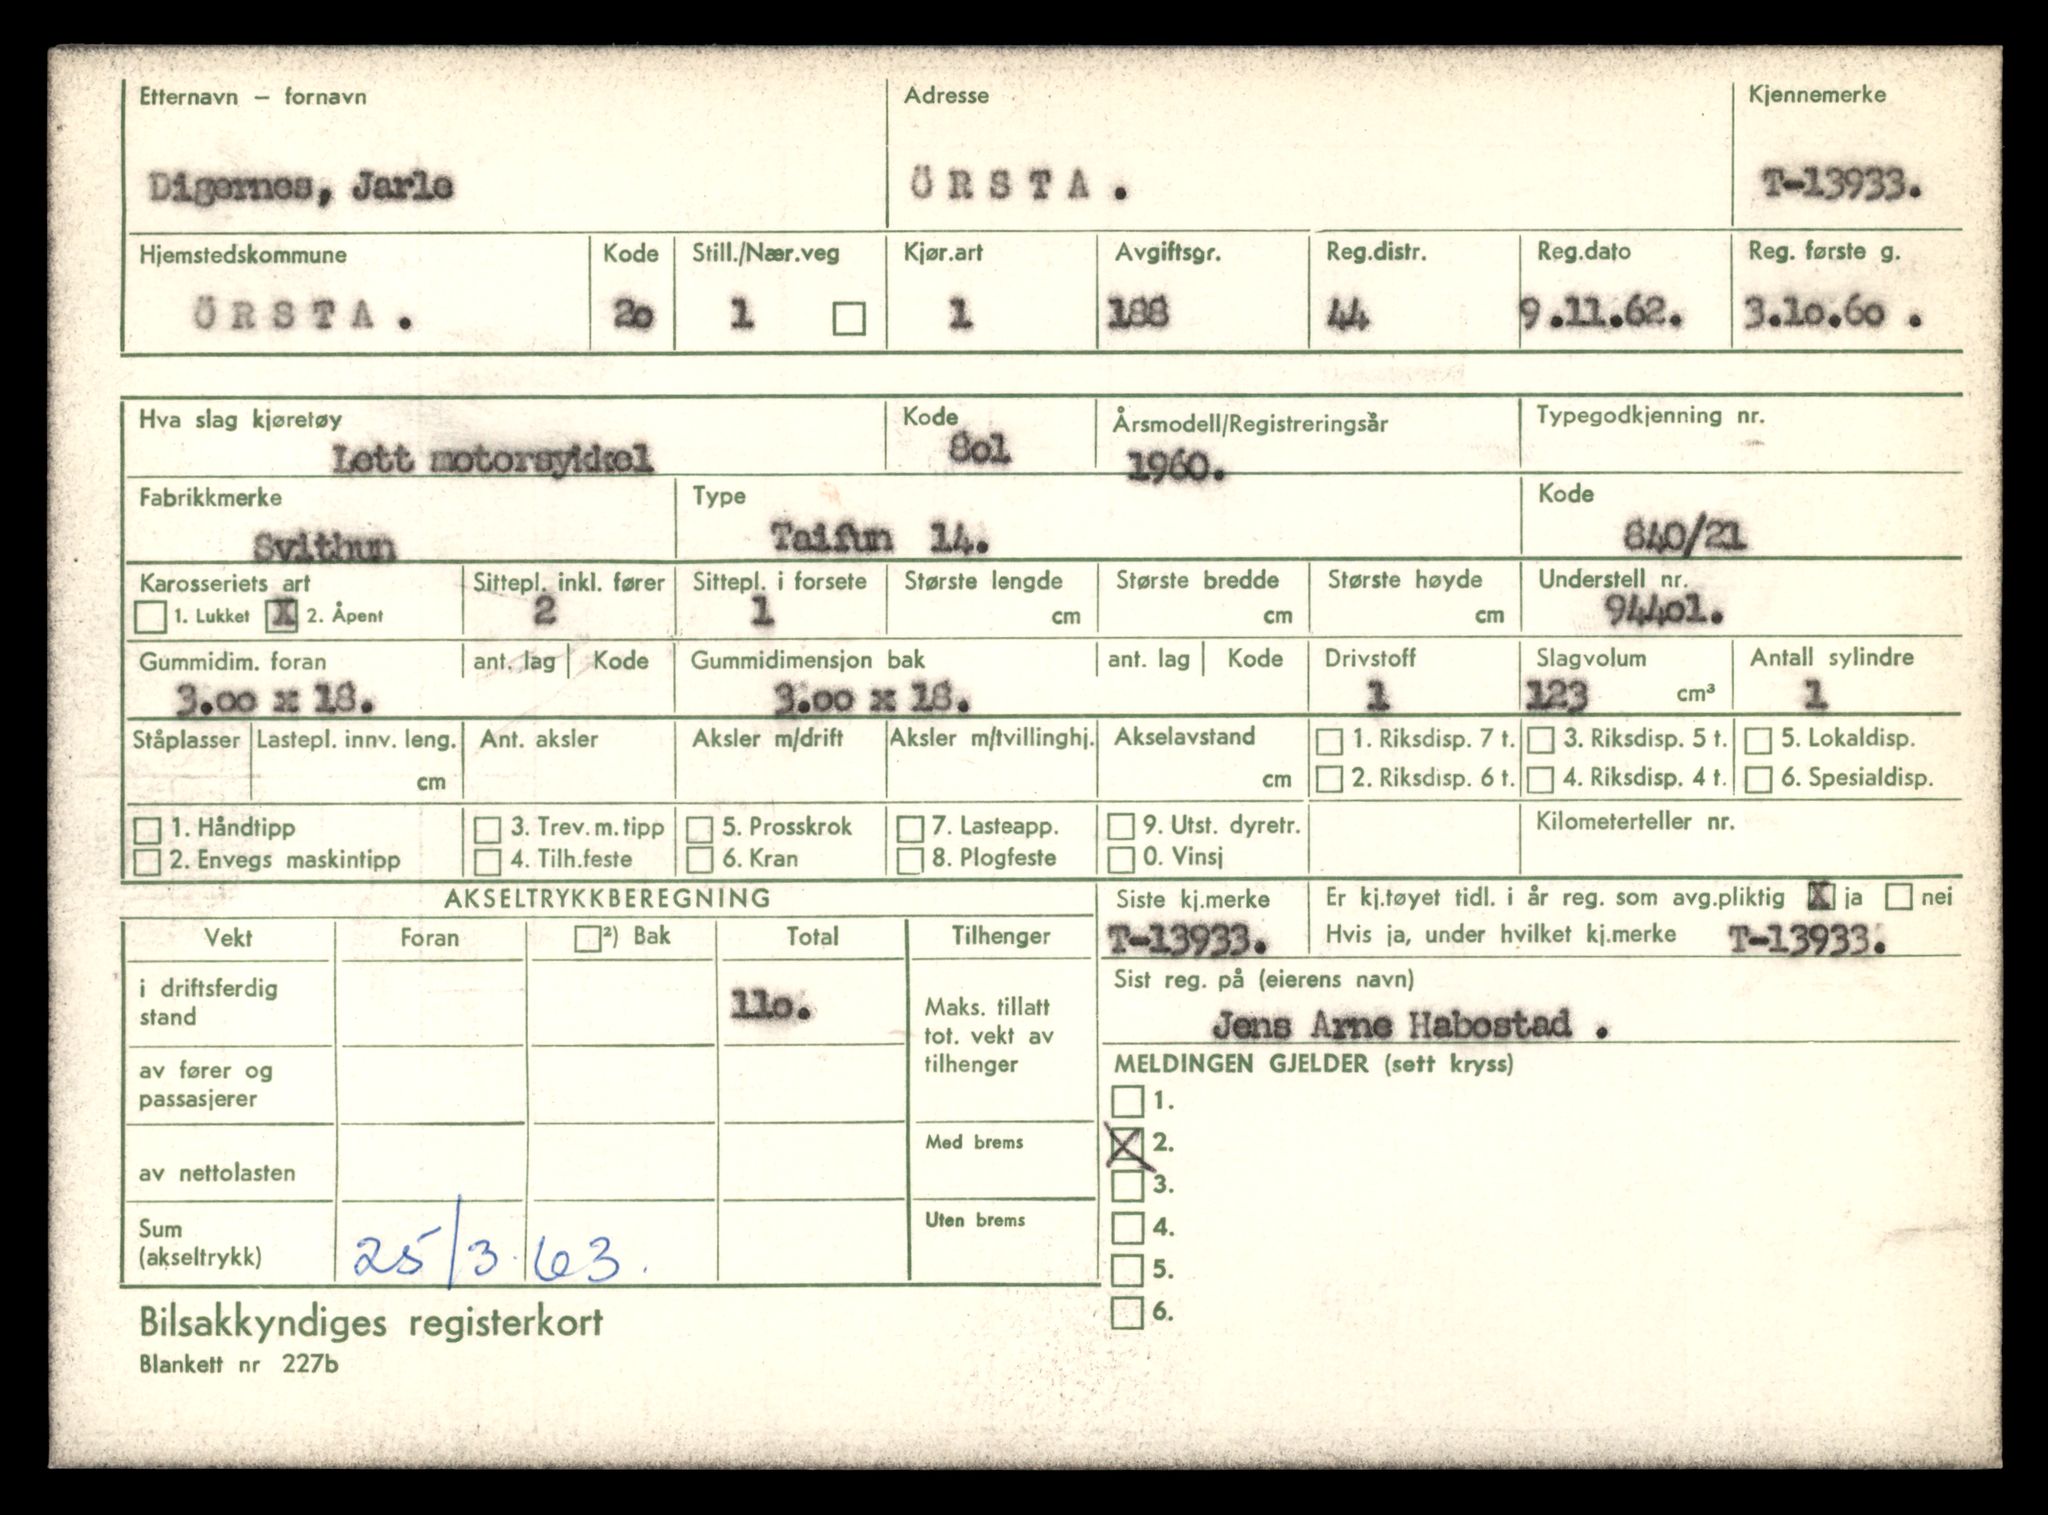 Etternavn – fornavn Adresse Kjennemerke
Digernes, Jarle ÖRSTA. T-13933.
Hjemstedskommune Kode Still./Nær.veg Kjør.art Avgiftsgr. Reg.distr. Reg.dato Reg. første g.
ÖRSTA. 2o 1 1 188 44 9.11.62. 3.1o.6o .
Hva slag kjøretøy Kode Årsmodell/Registreringsår Typegodkjenning nr.
Lett motorsykkel 8o1 1960.
Fabrikkmerke Type Kode
Svithun Taifun 14. 840/21
Karosseriets art Sittepl. inkl. fører Sittepl. i forsete Største lengde Største bredde Største høyde Understell nr.
1. Lukket X 2. Åpent 2 1 cm cm cm 944o1.
Gummidim. foran ant. lag Kode Gummidimensjon bak ant. lag Kode Drivstoff Slagvolum Antall sylindre
3.oo x 18. 3.oo x 18. 1 123 cm³ 1
Ståplasser Lastepl. innv. leng. Ant. aksler Aksler m/drift Aksler m/tvillinghj. Akselavstand 1. Riksdisp. 7 t. 3. Riksdisp. 5 t. 5. Lokaldisp.
cm cm 2. Riksdisp. 6 t. 4. Riksdisp. 4 t. 6. Spesialdisp.
1. Håndtipp 3. Trev. m. tipp 5. Prosskrok 7. Lasteapp. 9. Utst. dyretr. Kilometerteller nr.
2. Envegs maskintipp 4. Tilh.feste 6. Kran 8. Plogfeste 0. Vinsj
AKSELTRYKKBEREGNING Siste kj.merke Er kj.tøyet tidl. i år reg. som avg.pliktig X ja nei
Vekt Foran ²) Bak Total Tilhenger T-13933. Hvis ja, under hvilket kj.merke T-13933.
i driftsferdig stand 11o. Maks. tillatt tot. vekt av tilhenger
Sist reg. på (eierens navn)
Jens Arne Habostad .
av fører og passasjerer
MELDINGEN GJELDER (sett kryss)
1.
Med brems X 2.
av nettolasten 3.
Uten brems 4.
Sum (akseltrykk) 25/3.63.
5.
6.
Bilsakkyndiges registerkort
Blankett nr 227b